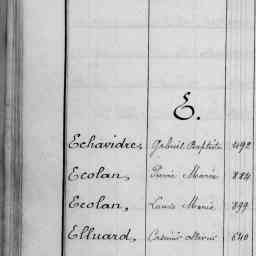 E.
Echavidre, Gabriel Baptiste 492
Ecolan, Pierre Marie 884
Ecolan, Louis Marie 899
Elluard, Casimir 640